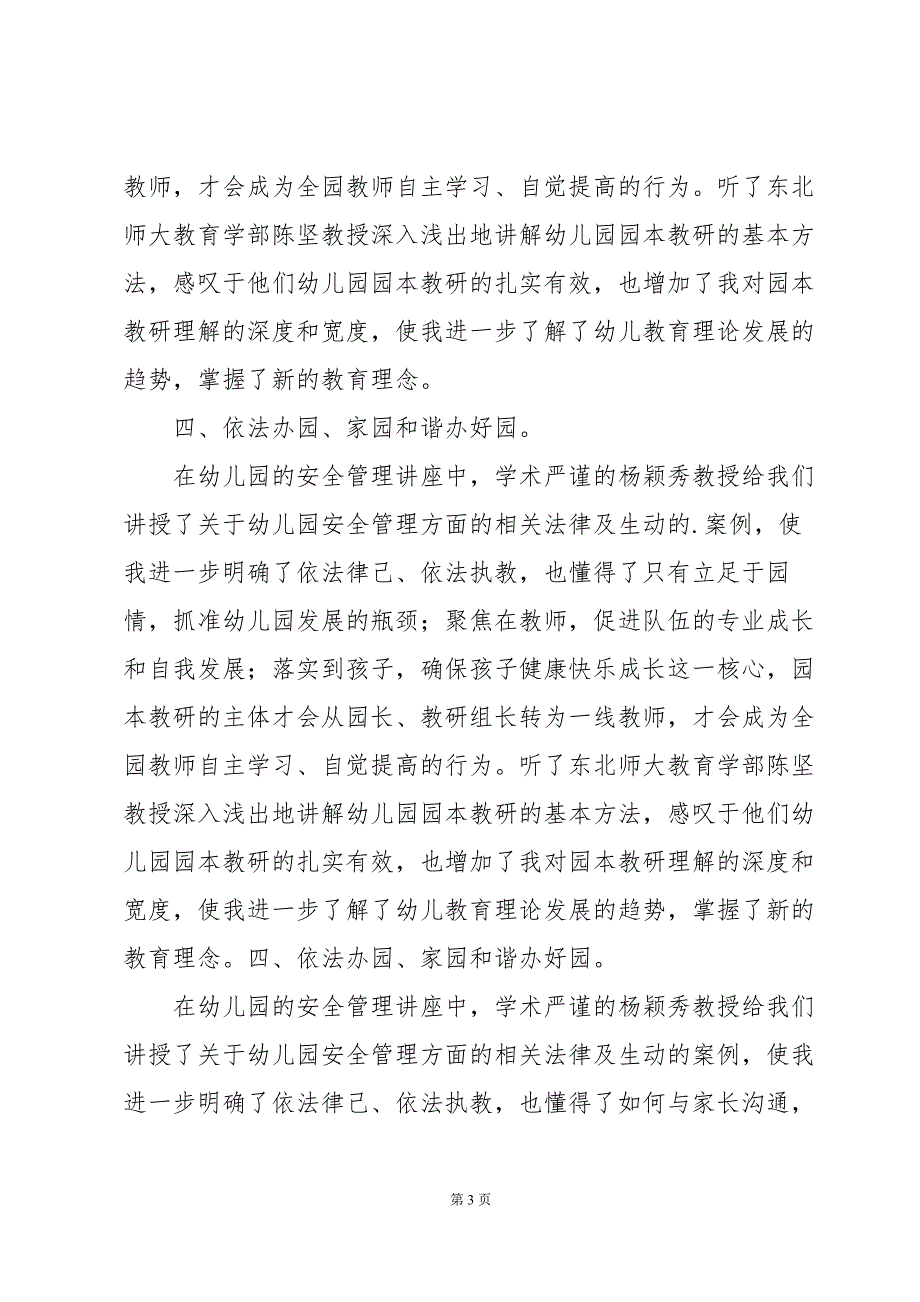 教师，才会成为全园教师自主学习、自觉提高的行为。听了东北
师大教育学部陈坚教授深入浅出地讲解幼儿园园本教研的基本方
法，感叹于他们幼儿园园本教研的扎实有效，也增加了我对园本
教研理解的深度和宽度，使我进一步了解了幼儿教育理论发展的
趋势，掌握了新的教育理念。
四、依法办园、家园和谐办好园。
在幼儿园的安全管理讲座中，学术严谨的杨颖秀教授给我们
讲授了关于幼儿园安全管理方面的相关法律及生动的.案例，使
我进一步明确了依法律己、依法执教，也懂得了只有立足于园
情，抓准幼儿园发展的瓶颈；聚焦在教师，促进队伍的专业成长
和自我发展；落实到孩子，确保孩子健康快乐成长这一核心，园
本教研的主体才会从园长、教研组长转为一线教师，才会成为全
园教师自主学习、自觉提高的行为。听了东北师大教育学部陈坚
教授深入浅出地讲解幼儿园园本教研的基本方法，感叹于他们幼
儿园园本教研的扎实有效，也增加了我对园本教研理解的深度和
宽度，使我进一步了解了幼儿教育理论发展的趋势，掌握了新的
教育理念。四、依法办园、家园和谐办好园。
在幼儿园的安全管理讲座中，学术严谨的杨颖秀教授给我们
讲授了关于幼儿园安全管理方面的相关法律及生动的案例，使我
进一步明确了依法律己、依法执教，也懂得了如何与家长沟通，
第 3 页